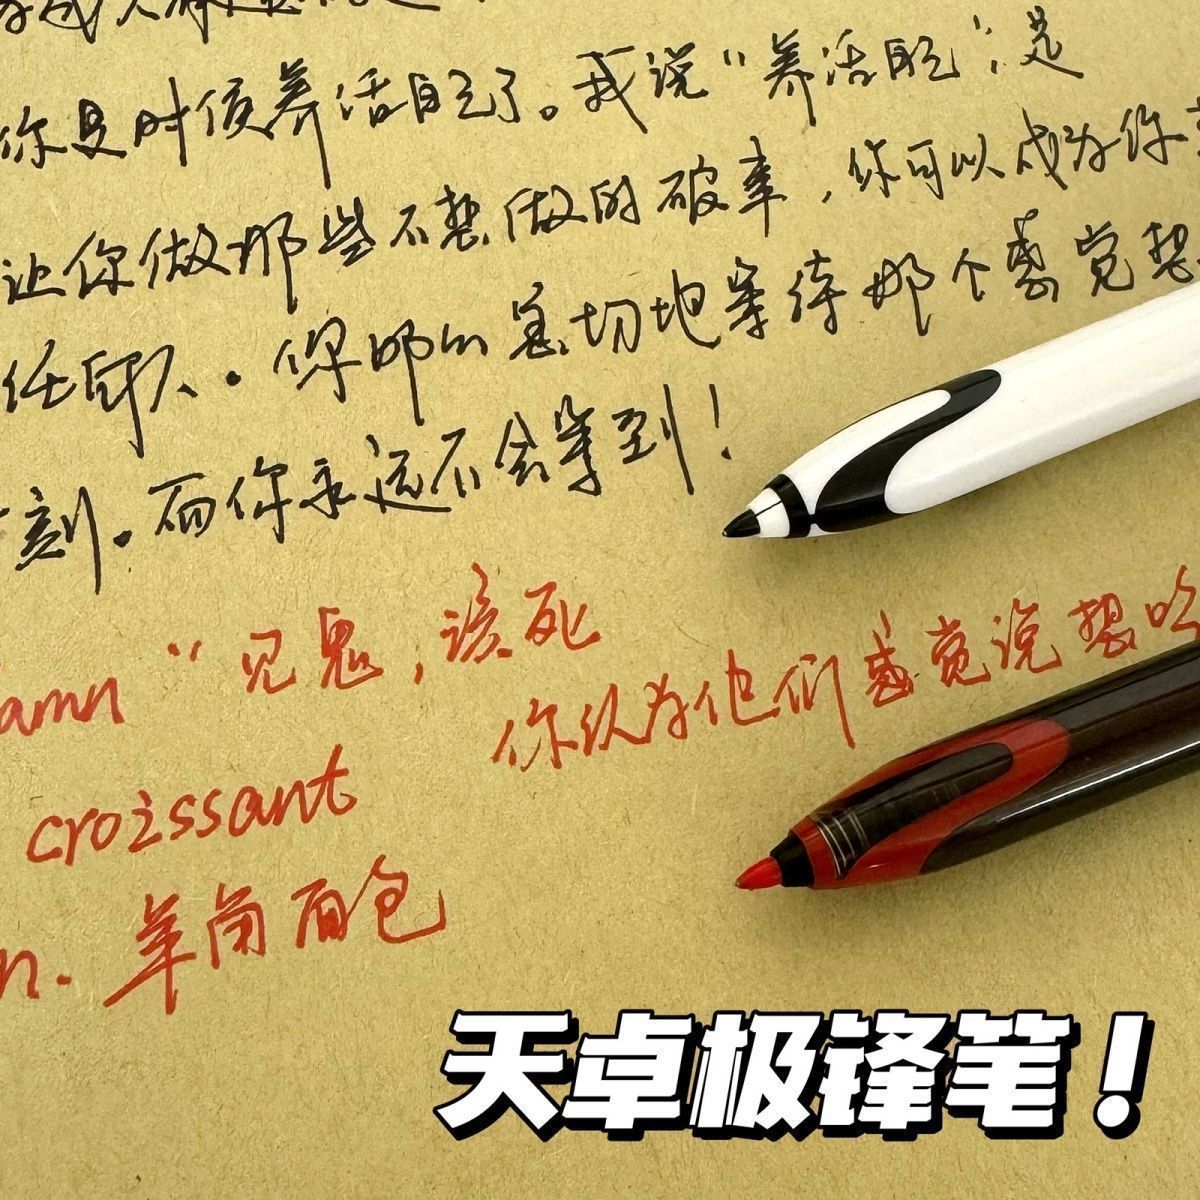 你是时候养活自己了。我说“养活自己”，是
让你做那些不想做的破事，你可以成为你
任何人. 你那么急切地等待那个感觉想
刻。而你永远不会等到！
amn “见鬼，该死
你认为他们感觉说想吃
croissant
n. 羊角面包
天卓极锋笔！